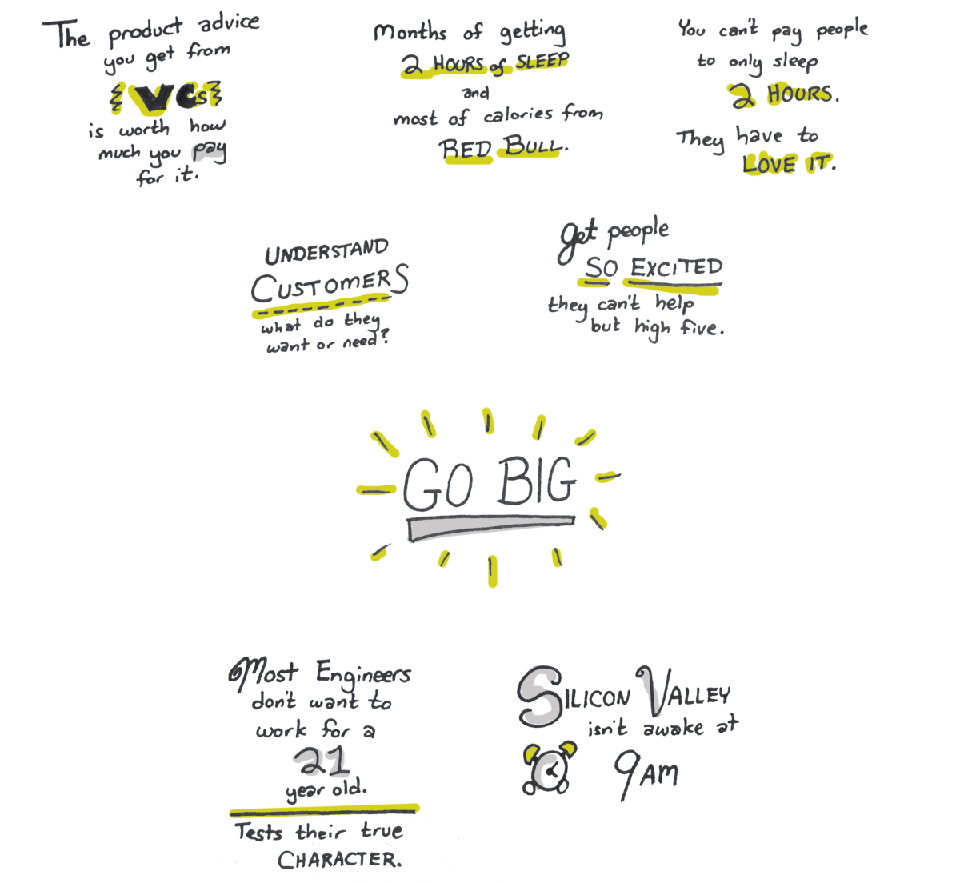 The product advice
you get from
VCs
is worth how
much you pay
for it.
Months of getting
2 HOURS of SLEEP
and
most of calories from
RED BULL.
You can't pay people
to only sleep
2 HOURS.
They have to
LOVE IT.
UNDERSTAND
CUSTOMERS
what do they
want or need?
get people
SO EXCITED
they can't help
but high five.
GO BIG
Most Engineers
don't want to
work for a
21
year old.
Tests their true
CHARACTER.
SILICON VALLEY
isn't awake at
9AM